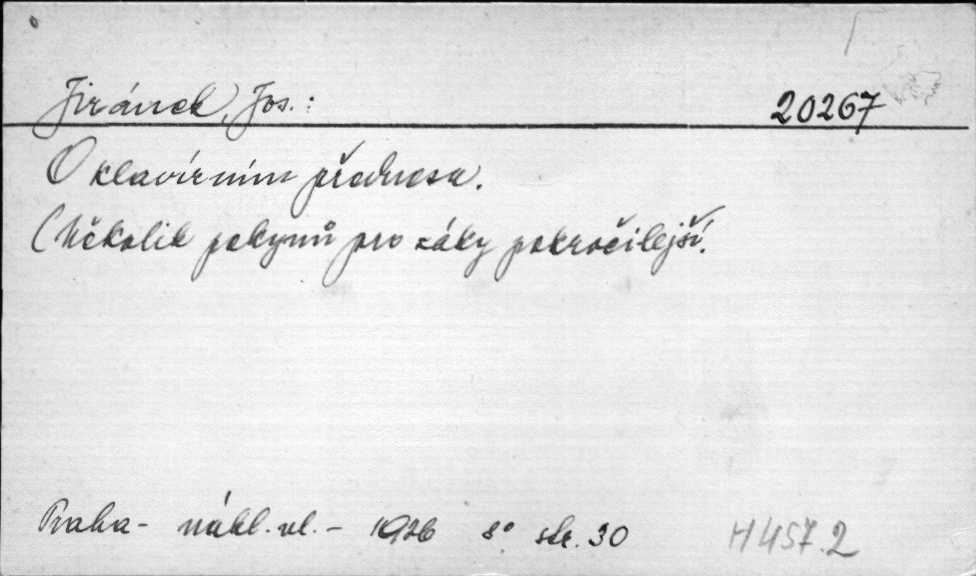 Jiránek, Jos.: 20267
O klavírním přednesu.
(Několik pokynů pro žáky pokročilejší.
Praha - nákl. vl. - 1926 8° str. 30 H 457.2